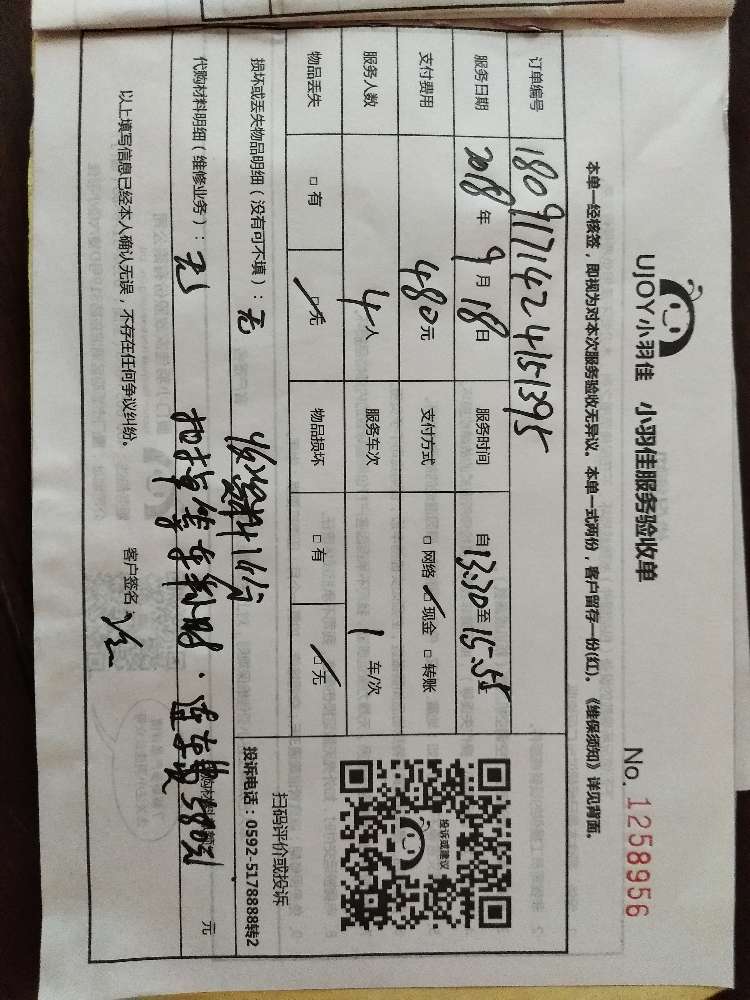 UJOY小羽佳 小羽佳服务验收单
No. 1258956
本单一经核签，即视为对本次服务验收无异议。本单一式两份，客户留存一份(红)。《维保须知》详见背面。
订单编号 1809171424151395
服务日期 2018年9月18日 服务时间 自13:30至15:35
支付费用 480元 支付方式 □网络 □现金 □转账
服务人数 4人 服务车次 1车/次
物品丢失 □有 □无 物品损坏 □有 □无
投诉或建议
扫码评价或投诉
投诉电话：0592-5178888转2
损坏或丢失物品明细（没有可不填）：无
代购材料明细（维修业务）：无
580元
元
以上填写信息已经本人确认无误，不存在任何争议纠纷。
客户签名：